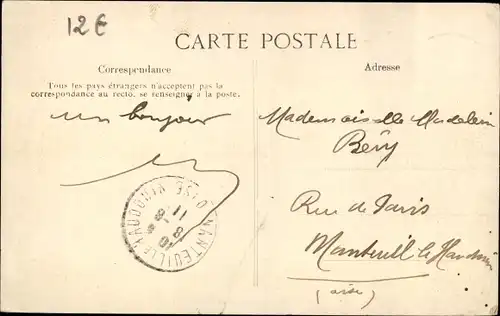 12€
CARTE POSTALE
Correspondance
Tous les pays étrangers n'acceptent pas la
correspondance au recto, se renseigner à la poste.
un bonjour
Adresse
Mademoiselle Madelein
Béry
Rue de Paris
Nanteuil le Haudouin
(Oise)
NANTEUIL-LE-HAUDOUIN OISE